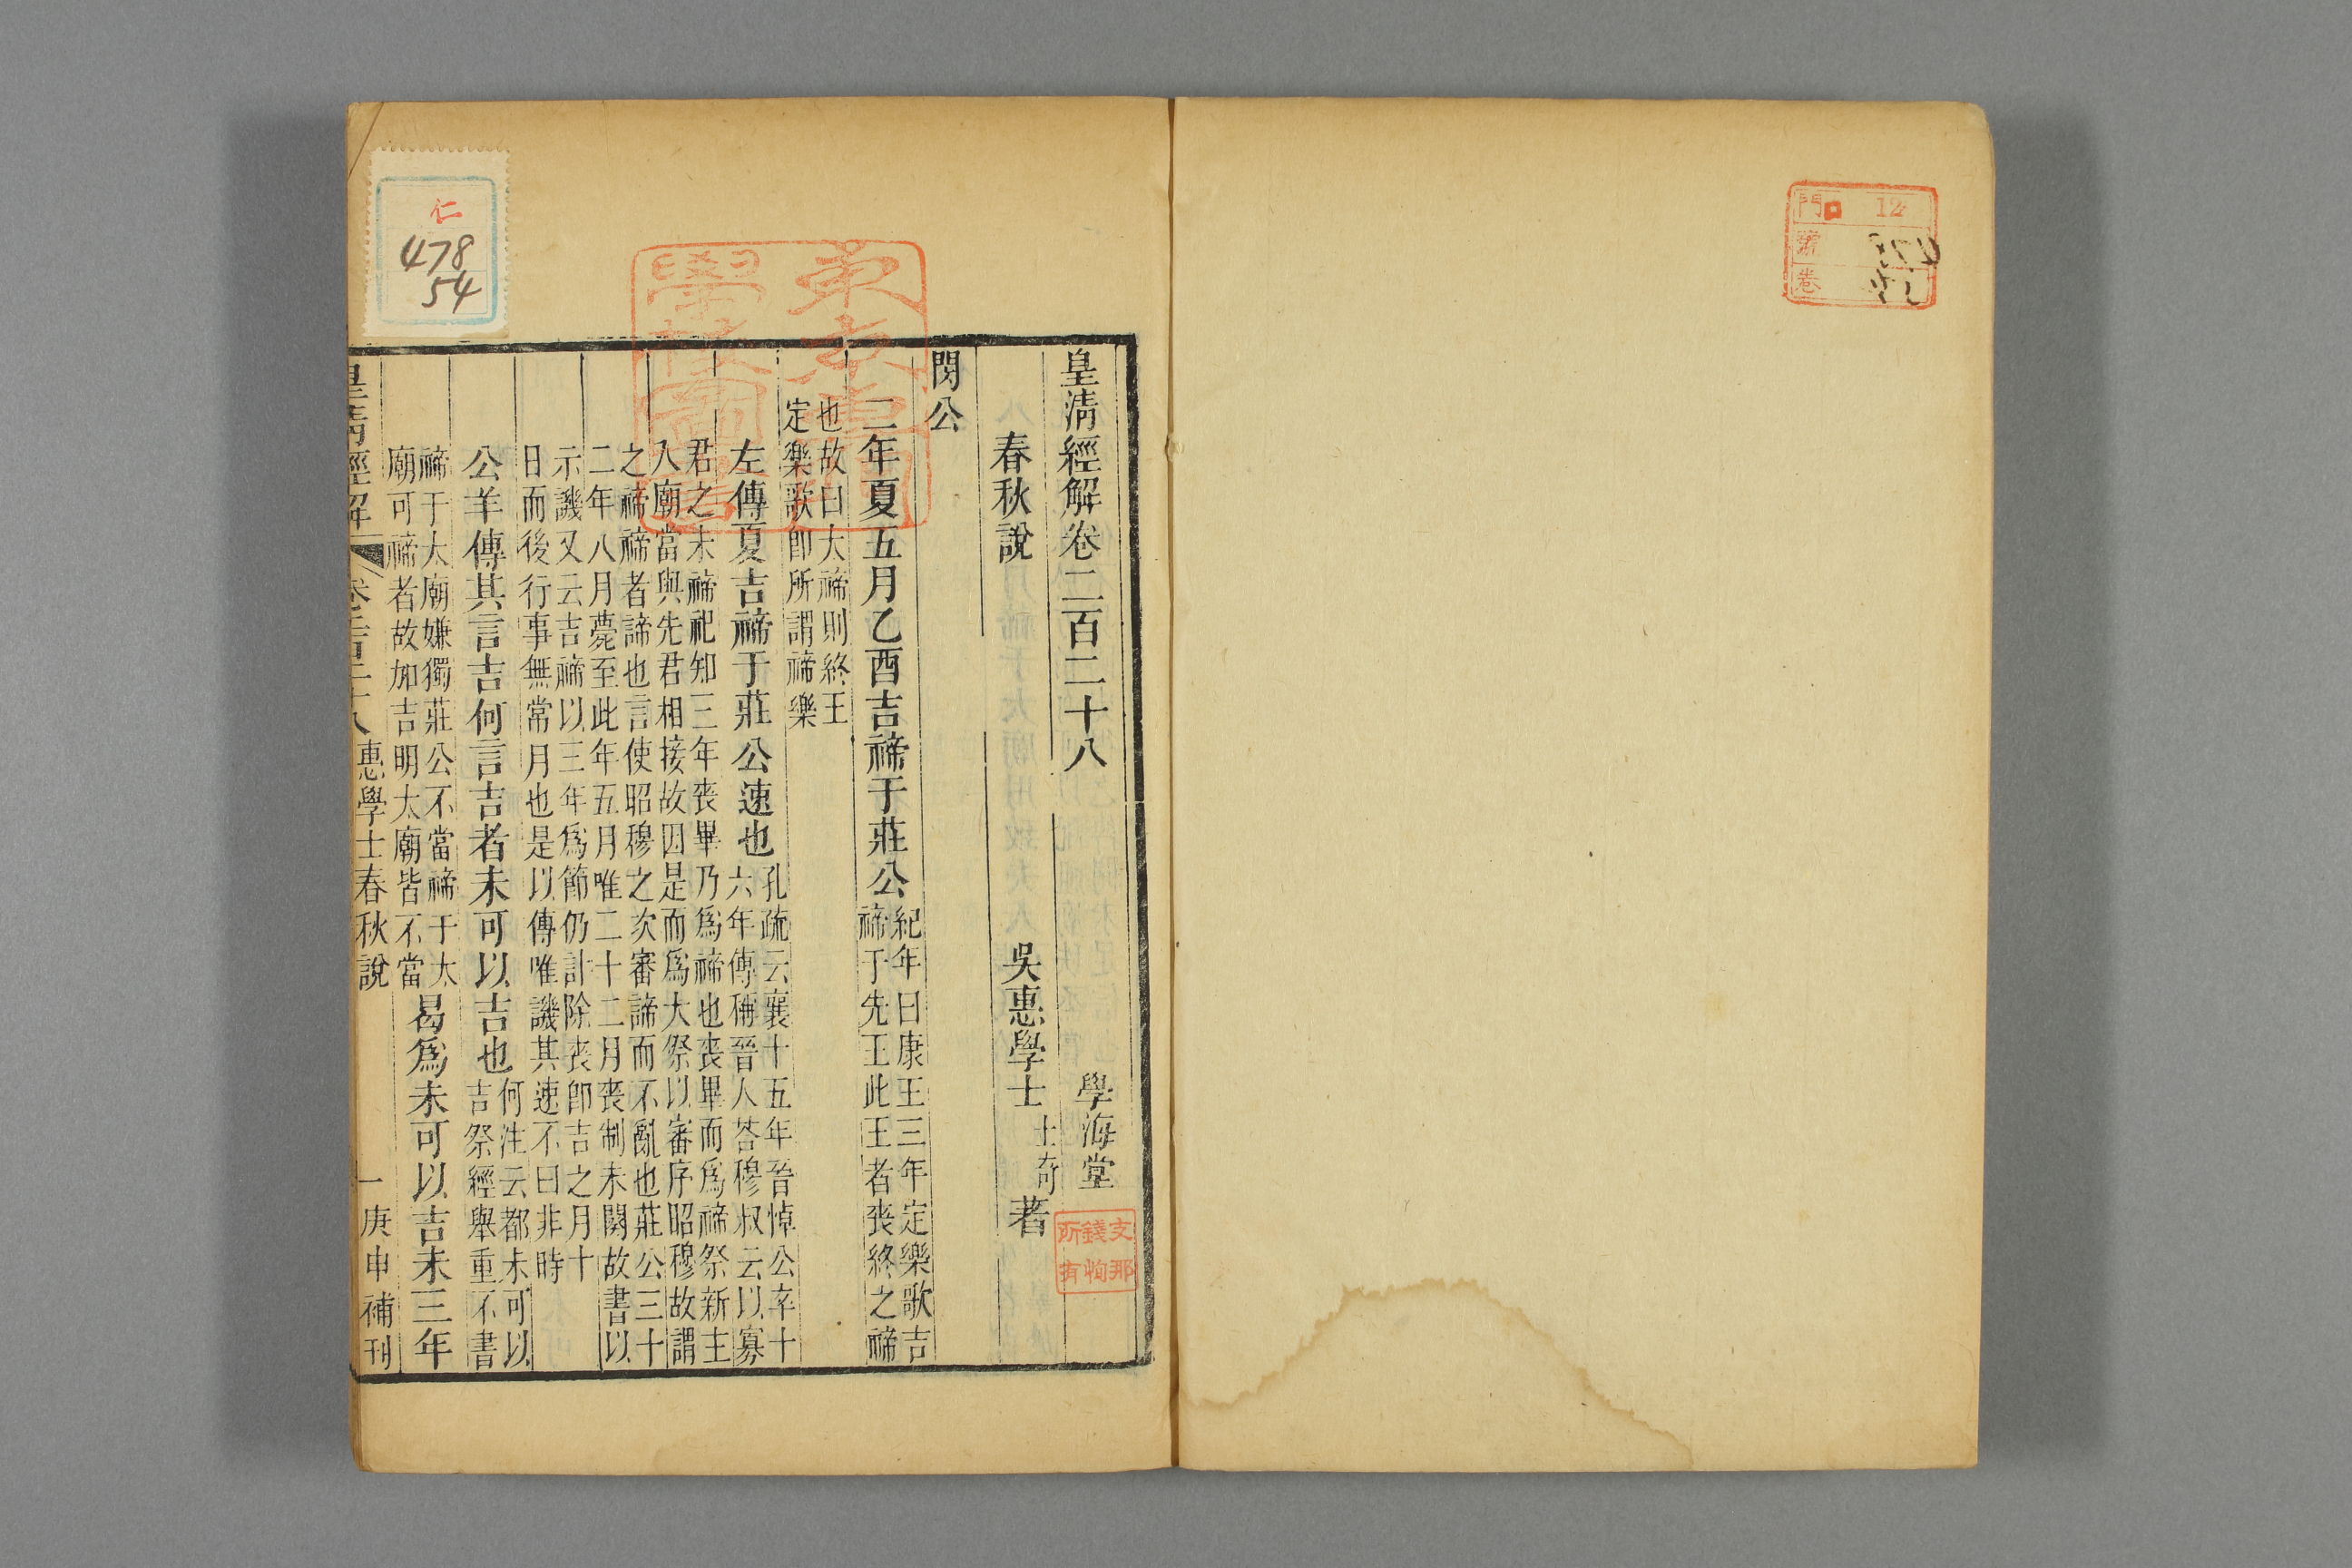 門 12
號
卷
皇淸經解卷二百二十八
學海堂
支那
錢恂
所有
春秋說
吳惠學士士奇著
閔公
二年夏五月乙酉吉禘于莊公
紀年曰康王三年定樂歌吉
禘于先王此王者喪終之禘
也故曰大禘則終王
定樂歌卽所謂禘樂
左傳夏吉禘于莊公速也
孔疏云襄十五年晉悼公卒十
六年傳稱晉人荅穆叔云以寡
君之未禘祀知三年喪畢乃爲禘也喪畢而爲禘祭新主
入廟當與先君相接故因是而爲大祭以審序昭穆故謂
之禘禘者諦也言使昭穆之次審諦而不亂也莊公三十
二年八月薨至此年五月唯二十二月喪制未闋故書以
示譏又云吉禘以三年爲節仍計除喪卽吉之月十
日而後行事無常月也是以傳唯譏其速不曰非時
公羊傳其言吉何言吉者未可以吉也
何注云都未可以
吉祭經舉重不書
禘于大廟嫌獨莊公不當禘于大
廟可禘者故加吉明大廟皆不當
曷爲未可以吉未三年
皇淸經解
卷二百二十八
惠學士春秋說
一
庚申補刊
東京專門
學校圖書
仁
478
54